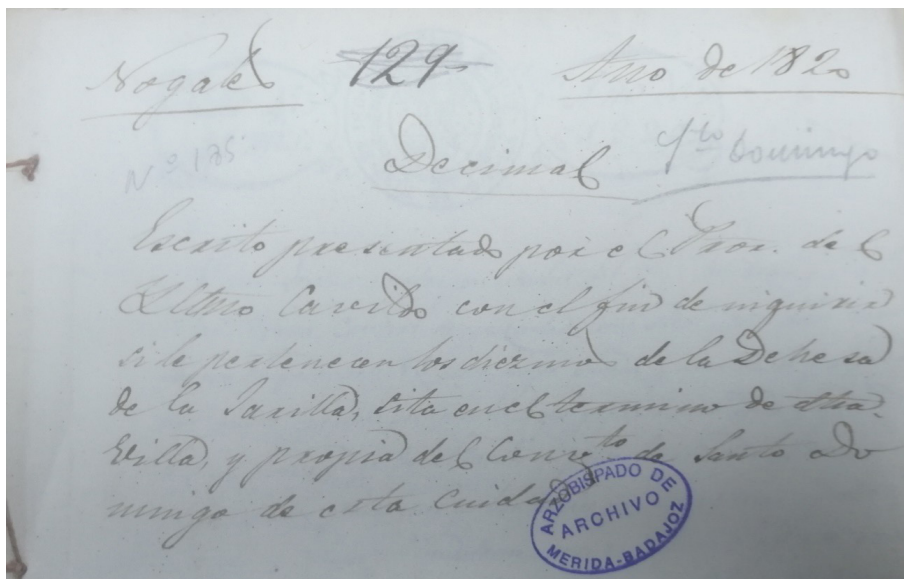 Nogales 129 Año de 1820
Nº 175 Decimal Sto Domingo
Escrito presentado por el Pror. del
Iltmo Cavildo con el fin de inquirir
si le pertenecen los diezmos de la Dehesa
de la Jarilla, sita en el termino de dha
Villa, y propia del Convto de Santo Do
mingo de esta Cuidad
ARZOBISPADO DE
ARCHIVO
MERIDA-BADAJOZ